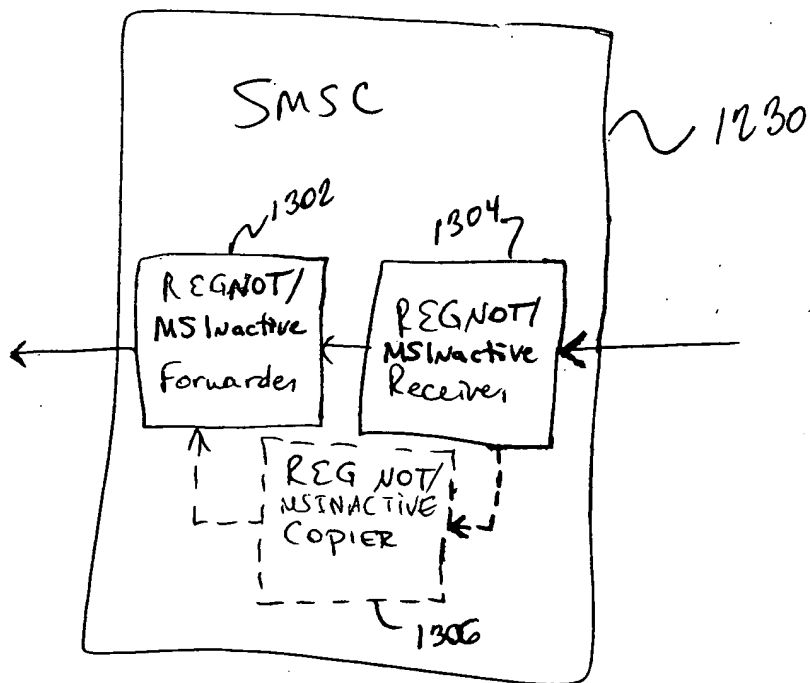 SMSC
1230
1302
REGNOT/
MSInactive
Forwarder
1304
REGNOT/
MSInactive
Receiver
REG NOT/
MSINACTIVE
COPIER
1306